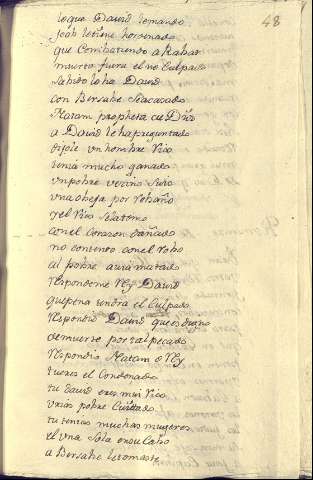 48
lo que David demando
Joab le tiene hordenado
que Combatiendo a Rabat
muerto fuera el no Culpado
Sabido lo ha David
con Bersabe Se a casado
Natam propheta de Dios
a David le ha preguntado
dijole vn hombre Rico
tenia mucho ganado
vn pobre vezino Suio
vna obeja por rebaño
y el Rico se la tomo
con el corazon dañado
no contento con el robo
al pobre auia matado
respondeme Rey David
que pena tendra el Culpado
respondio David que es digno
de muerte por tal pecado
respondio Natam o Rey
tu eres el Condenado
tu david eres mui Rico
vrias pobre Cuitado
tu tenias muchas mugeres
el vna Sola en su Cabo
a Bersabe le tomaste